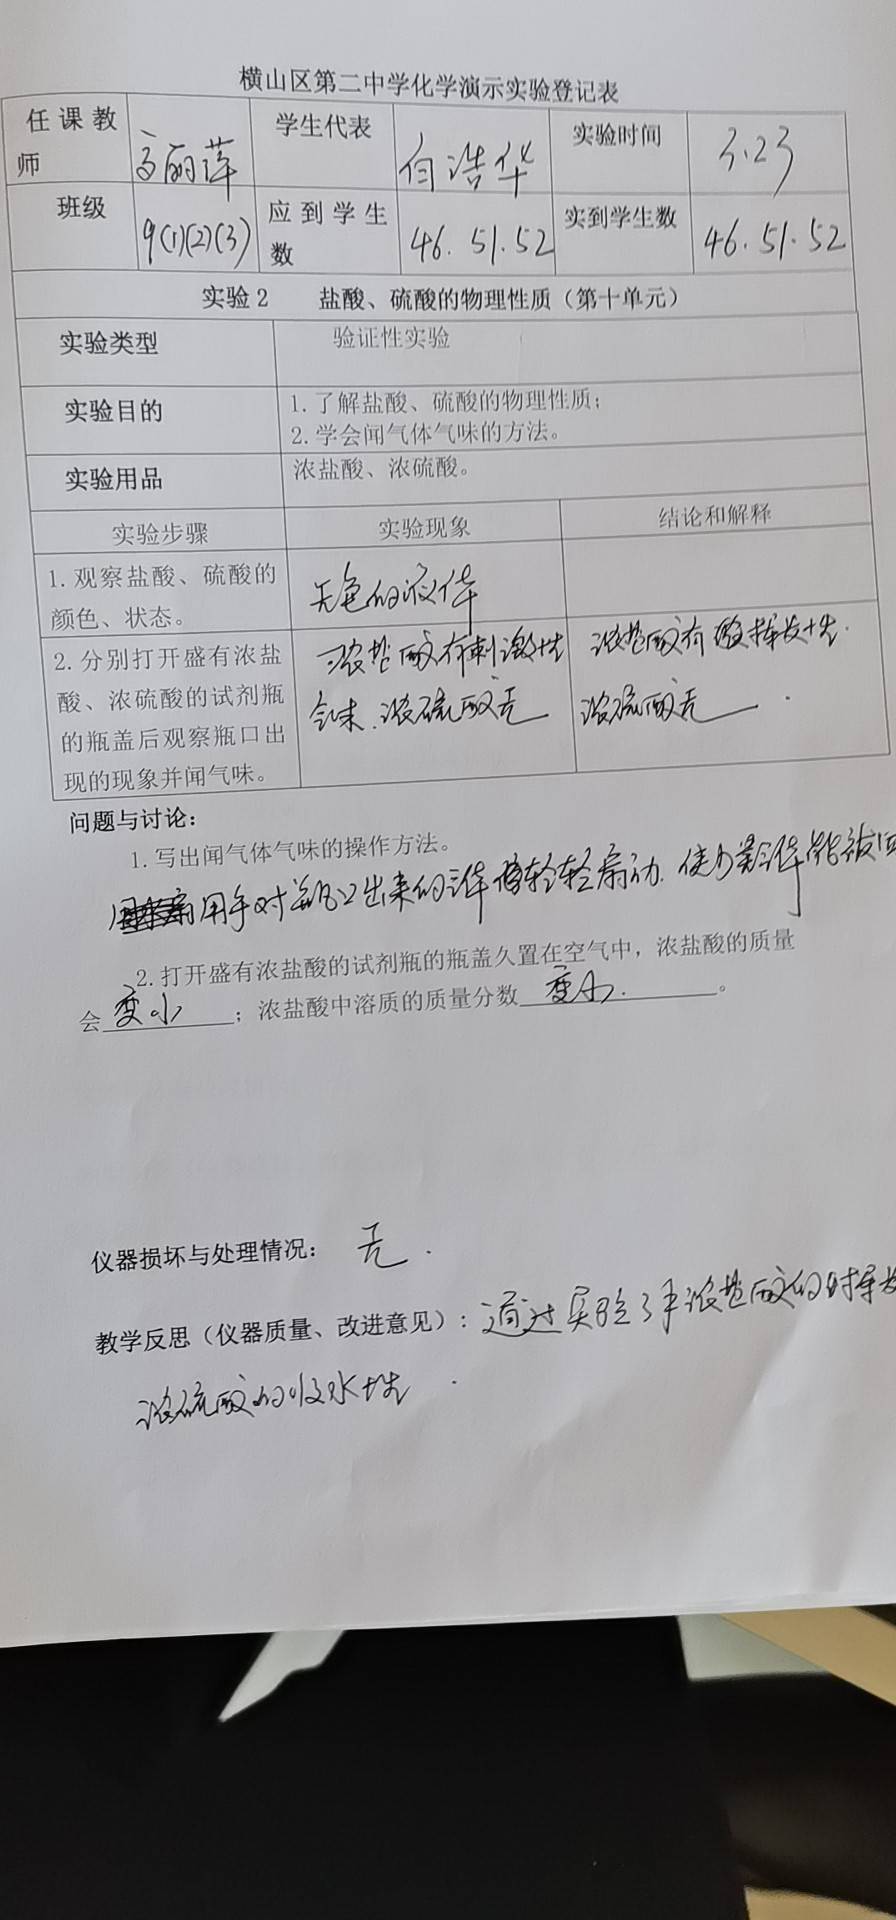 横山区第二中学化学演示实验登记表
任课教师 高丽萍 学生代表 白浩华 实验时间 3.23
班级 9(1)(2)(3) 应到学生数 46. 51. 52 实到学生数 46. 51. 52
实验2 盐酸、硫酸的物理性质（第十单元）
实验类型 验证性实验
实验目的 1.了解盐酸、硫酸的物理性质；
2.学会闻气体气味的方法。
实验用品 浓盐酸、浓硫酸。
实验步骤 实验现象 结论和解释
1.观察盐酸、硫酸的
颜色、状态。
无色的液体
2.分别打开盛有浓盐
酸、浓硫酸的试剂瓶
的瓶盖后观察瓶口出
现的现象并闻气味。
浓盐酸有刺激性
气味.浓硫酸无
浓盐酸有 挥发性.
浓硫酸无
问题与讨论：
1.写出闻气体气味的操作方法。
用手对 瓶口出来的 轻轻扇动.使少量
2.打开盛有浓盐酸的试剂瓶的瓶盖久置在空气中，浓盐酸的质量
会变小；浓盐酸中溶质的质量分数变小.。
仪器损坏与处理情况： 无.
教学反思（仪器质量、改进意见）：通过实验 浓盐酸的
浓硫酸的吸水性.